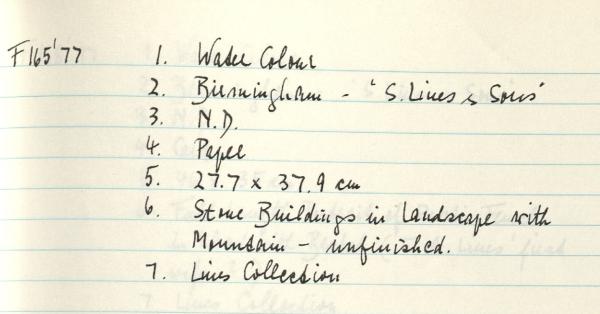 F165'77 1. Water Colour
2. Birmingham - 'S. Lines & Sons'
3. N.D.
4. Paper
5. 27.7 x 37.9 cm
6. Stone Buildings in Landscape with
Mountain - unfinished.
7. Lines Collection